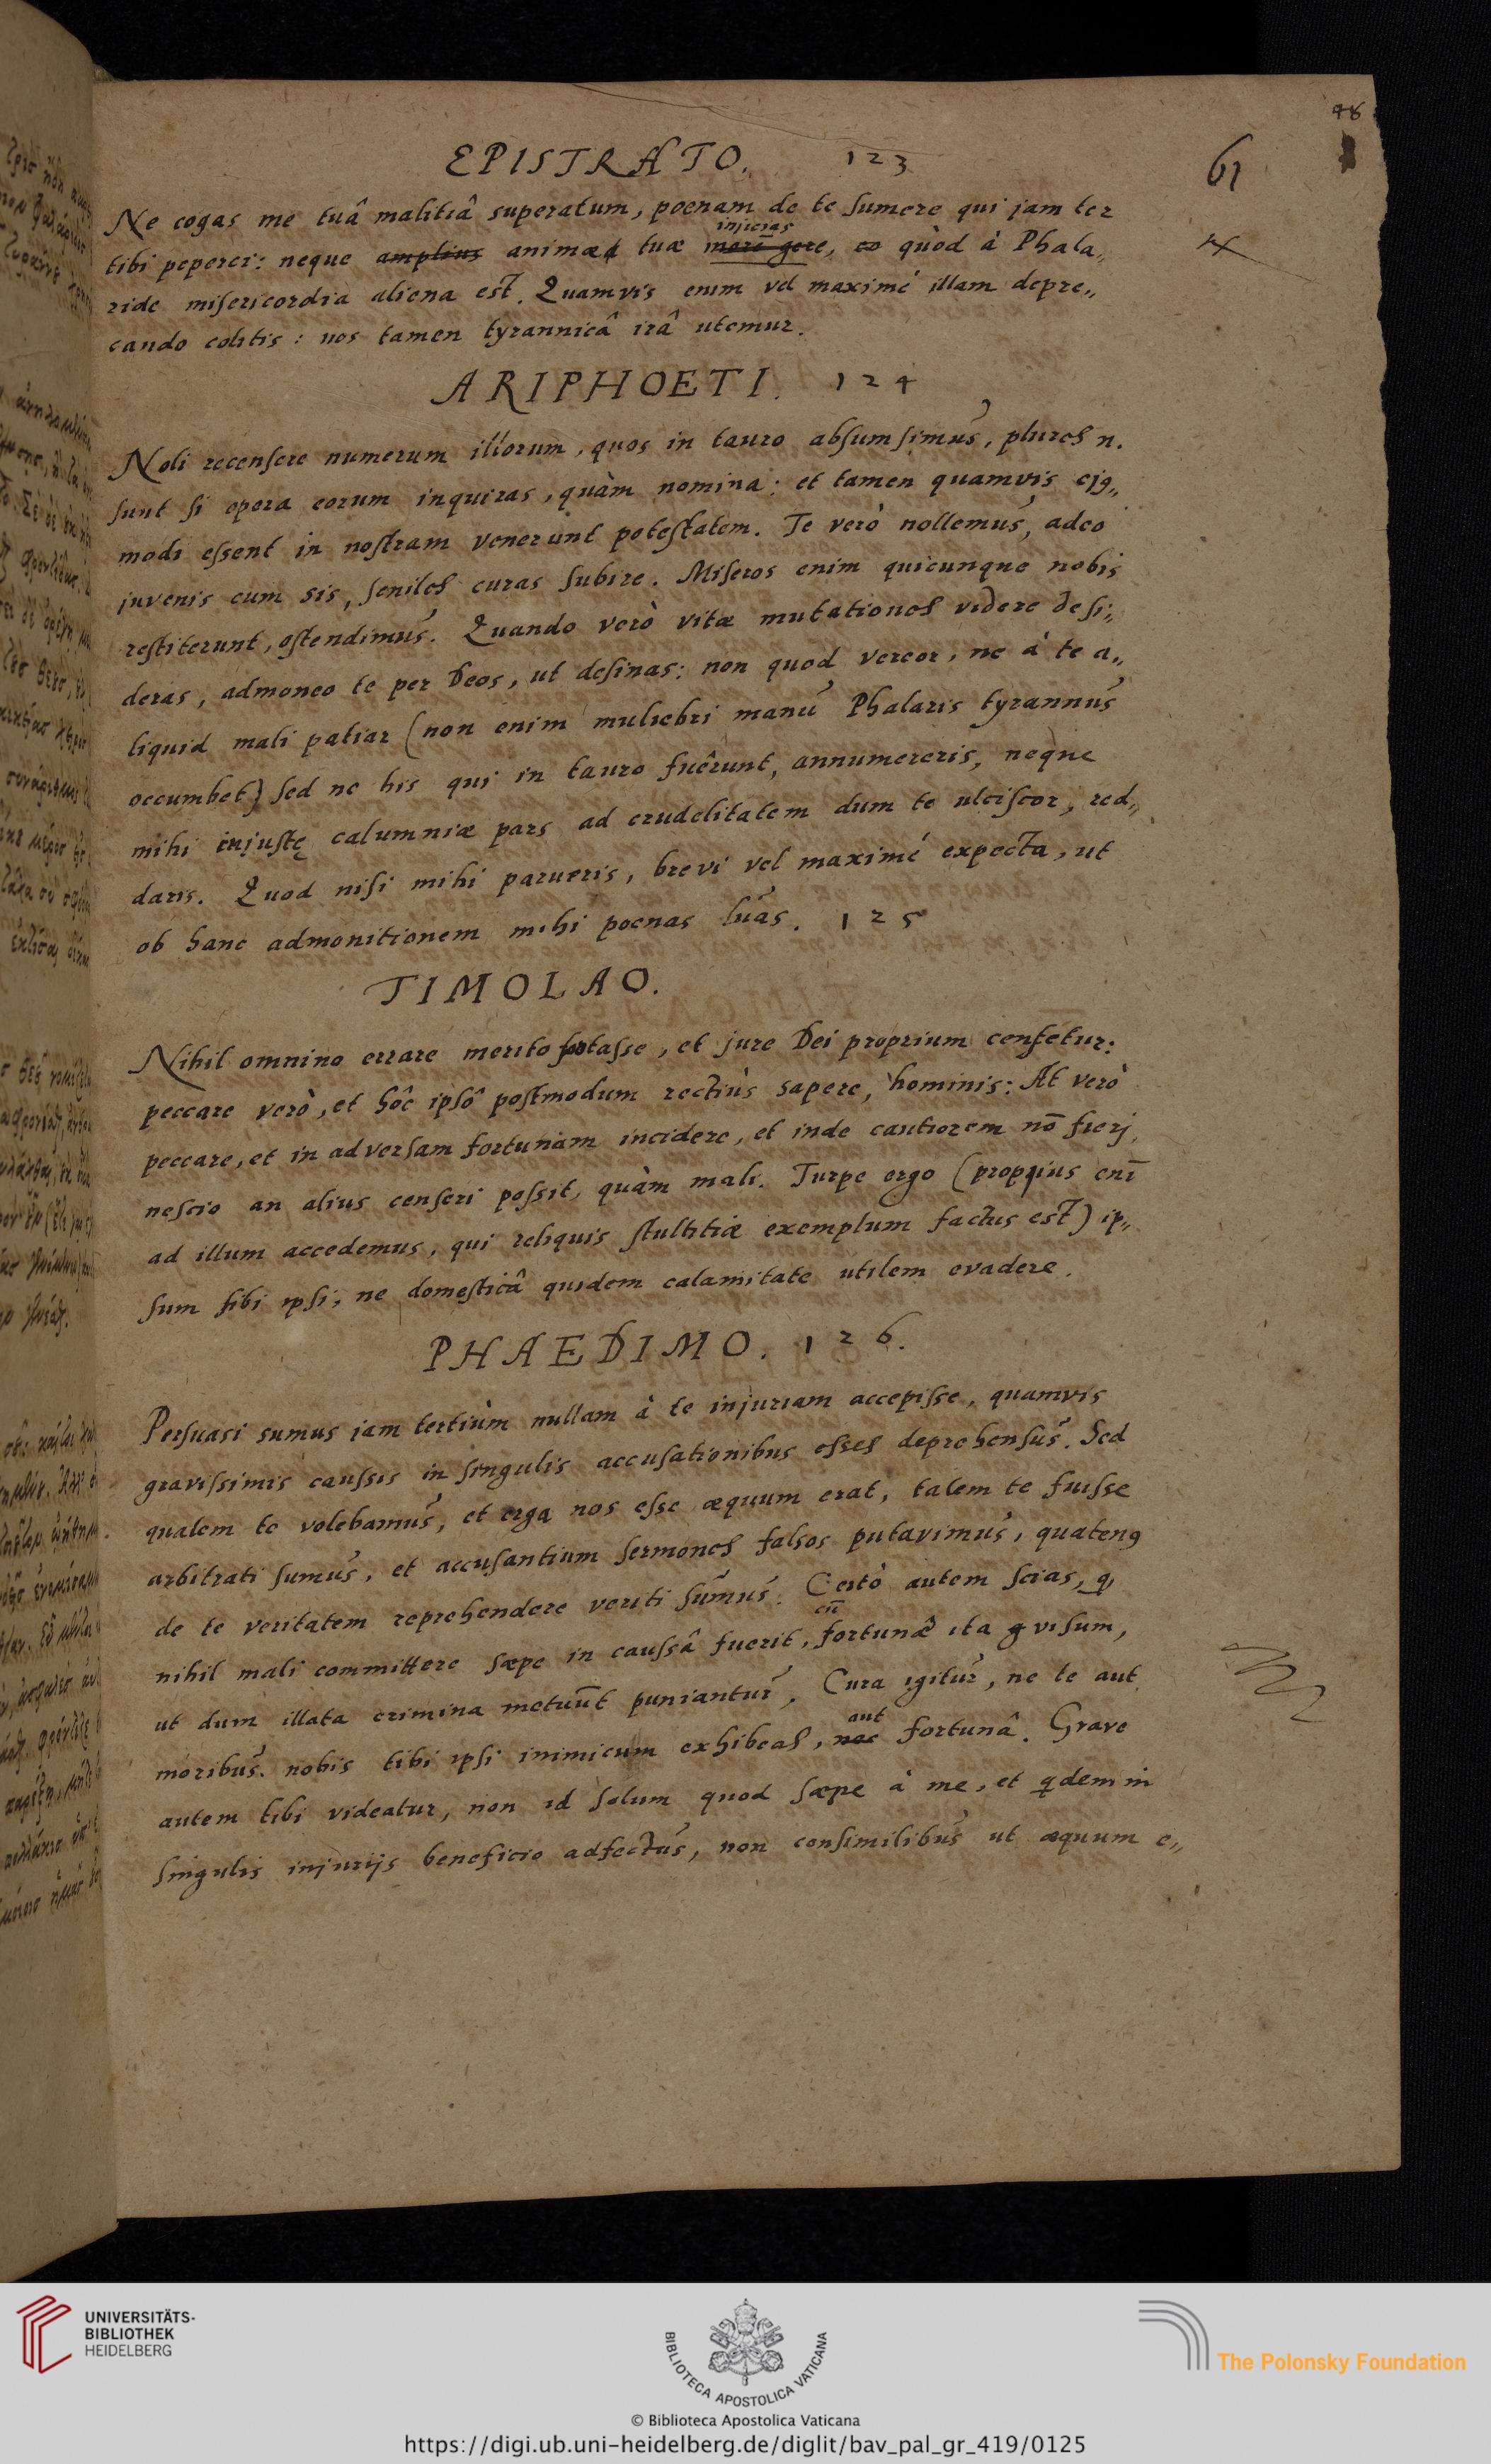 48
61
EPISTRATO. 123
Ne cogas me tuâ malitiâ superatum, poenam de te sumere qui jam ter
injicias
tibi peperci: neque amplius animæ tuæ morē gere, eo quòd à Phala„
ride misericordia aliena est. Quamvis enim vel maximé illam depre„
cando colitis: nos tamen tyrannicâ irâ utemur.
ARIPHOETI. 124
Noli recensere numerum illorum, quos in tauro absumsimus, plures n.
sunt si opera eorum inquiras, quàm nomina: et tamen quamvis ejꝰ„
modi essent in nostram venerunt potestatem. Te verò nollemus, adeo
juvenis cum sis, seniles curas subire. Miseros enim quicunque nobis
restiterunt, ostendimus. Quando verò vitæ mutationes videre desi„
deras, admoneo te per Deos, ut desinas: non quod vereor, ne à te a„
liquid mali patiar (non enim muliebri manu Phalaris tyrannus
occumbet) sed ne his qui in tauro fuêrunt, annumereris, neque
mihi injustę calumniæ pars ad crudelitatem dum te ulciscor, red„
daris. Quod nisi mihi parueris, brevi vel maximé expecta, ut
ob hanc admonitionem mihi poenas luas. 125
TIMOLAO.
Nihil omnino errare merito fortasse, et jure Dei proprium censetur:
peccare verò, et hôc ipsô postmodum rectiùs sapere, hominis: At verò
peccare, et in adversam fortunam incidere, et inde cautiorem nō fierj,
nescio an alius censeri possit, quàm mali. Turpe ergo (propius enī
ad illum accedemus, qui reliquis stultitiæ exemplum factus est) ip„
sum sibi ipsi, ne domesticâ quidem calamitate utilem evadere.
PHAEDIMO. 126.
Persuasi sumus jam tertiùm nullam à te injuriam accepisse, quamvis
gravissimis caussis in singulis accusationibus esses deprehensus. Sed
qualem te volebamus, et erga nos esse æquum erat, talem te fuisse
arbitrati sumus, et accusantium sermones falsos putavimus, quatenꝰ
de te veritatem reprehendere veriti sumus. Certò autem scias, q,
cū
nihil mali committere sæpe in caussâ fuerit, fortunæ ita visum,
ut dum illata crimina metuūt puniantur. Cura igitur, ne te aut
aut
moribus nobis tibi ipsi inimicum exhibeas, nec fortunâ. Grave
autem tibi videatur, non id solum quod sæpe à me, et qdem in
singulis injurijs beneficio adfectus, non consimilibus ut æquum e„
UNIVERSITÄTS-
BIBLIOTHEK
HEIDELBERG
BIBLIOTECA APOSTOLICA VATICANA
The Polonsky Foundation
© Biblioteca Apostolica Vaticana
https://digi.ub.uni-heidelberg.de/diglit/bav_pal_gr_419/0125